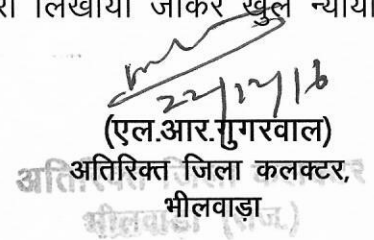 लिखाया जाकर खुले न्याया
22/12/16
(एल.आर.गुगरवाल)
अतिरिक्त जिला कलक्टर,
भीलवाड़ा
अतिरिक्त जिला कलक्टर
भीलवाड़ा (राज.)